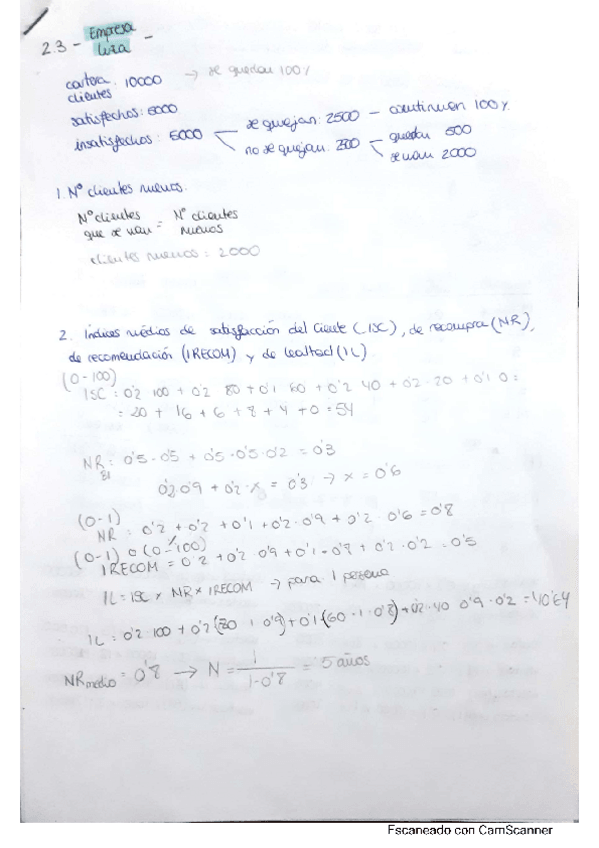 23 - Empresa Luza -
cartera clientes: 10000 → se quedan 100%
satisfechos: 5000
insatisfechos: 5000
se quejan: 2500 - continuan 100%
no se quejan: 2500
quedan 500
se van 2000
1. Nº clientes nuevos.
Nº clientes que se van = Nº clientes nuevos
clientes nuevos: 2000
2. Índices médios de satisfacción del cliente (ISC), de recompra (NR),
de recomendación (IRECOM) y de lealtad (IL).
(0-100)
ISC = 0'2 · 100 + 0'2 · 80 + 0'1 · 60 + 0'2 · 40 + 0'2 · 20 + 0'1 · 0 =
= 20 + 16 + 6 + 8 + 4 + 0 = 54
NR = 0'5 · 0'5 + 0'5 · 0'5 · 0'2 = 0'3
0'2 · 0'9 + 0'2 · x = 0'3 → x = 0'6
(0-1)
NR = 0'2 + 0'2 + 0'1 + 0'2 · 0'9 + 0'2 · 0'6 = 0'8
(0-1) o (0-100)
IRECOM = 0'2 + 0'2 · 0'9 + 0'1 · 0'8 + 0'2 · 0'2 = 0'5
IL = ISC × NR × IRECOM → para 1 persona
IL = 0'2 · 100 + 0'2 (80 · 1 · 0'9) + 0'1 (60 · 1 · 0'8) + 0'2 · 40 · 0'9 · 0'2 = 40'64
NR medio = 0'8 → N = 1 / 1-0'8 = 5 años
Escaneado con CamScanner